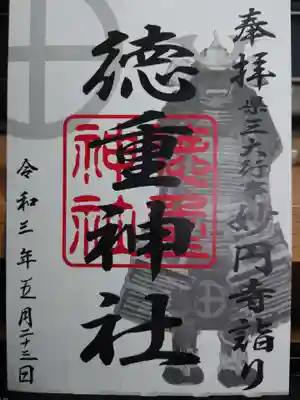 奉拝 県三大行事 妙円寺詣り
徳重神社
徳重
神社
令和三年五月二十三日